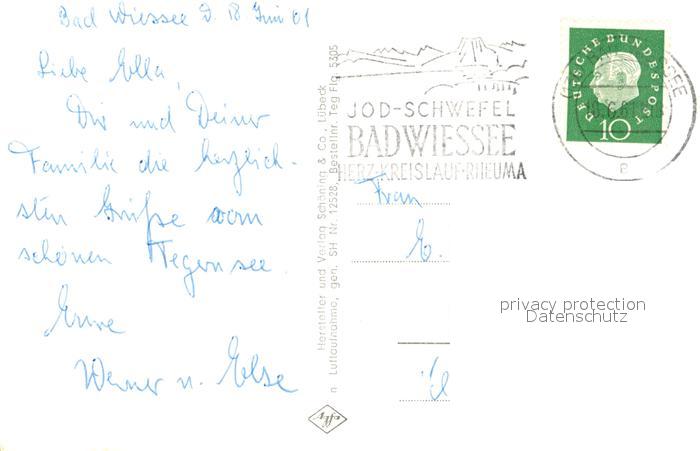 Bad Wiessee d. 18 Juni 61
Liebe Ella,
Dir und Deiner
Familie die herzlich-
sten Grüße vom
schönen Tegernsee.
Eure
Werner u. Else
Hersteller und Verlag Schöning & Co., Lübeck
n Luftaufnahme, gen. SH Nr. 12528, Bestellnr. Teg Flg. 5305
JOD-SCHWEFEL
BAD WIESSEE
HERZ-KREISLAUF-RHEUMA
DEUTSCHE BUNDESPOST
10
Frau
E.
privacy protection
Datenschutz